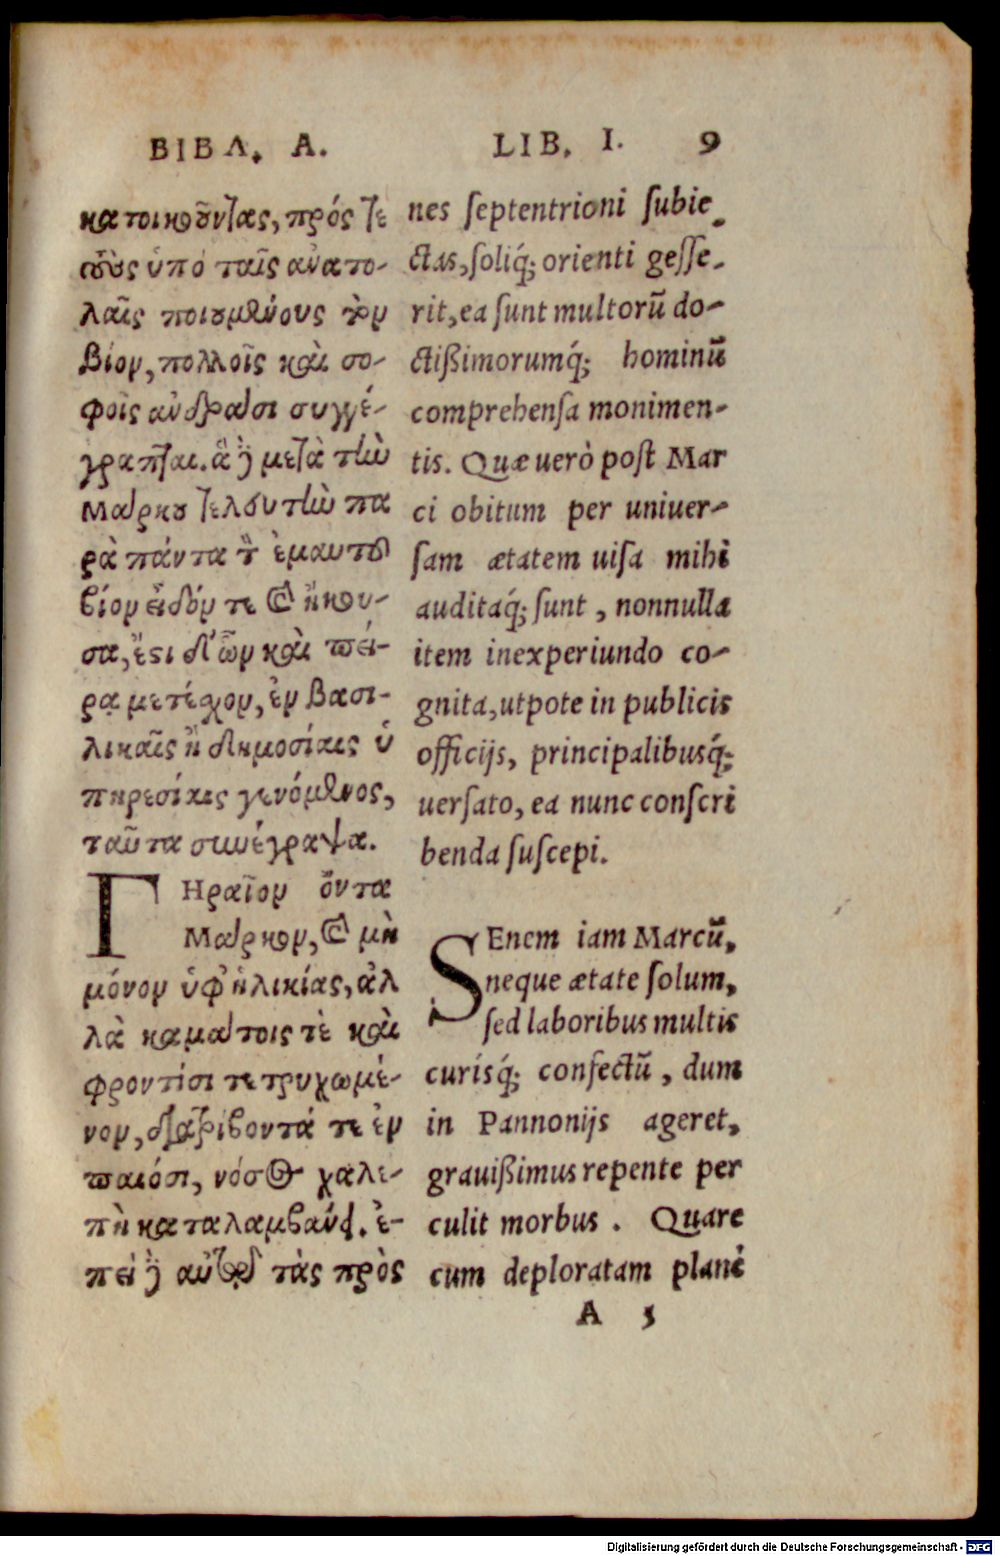 ΒΙΒΛ. Α.
κατοικοῦντας, πρός τε
τοὺς ὑπὸ ταῖς ἀνατο-
λαῖς ποιουμένους τὸν
βίον, πολλοῖς καὶ σο-
φοῖς ἀνδράσι συγγέ-
γραπται. ἃ δὲ μετὰ τὴν
Μάρκου τελευτὴν πα
ρὰ πάντα τὸν ἐμαυτοῦ
βίον εἶδόν τε καὶ ἤκου-
σα, ἔστι δ' ὧν καὶ πεί-
ρᾳ μετέχον, ἐν βασι-
λικαῖς ἢ δημοσίαις ὑ
πηρεσίαις γενόμενος,
ταῦτα συνέγραψα.
ΓΗραῖον ὄντα
Μάρκον, καὶ μὴ
μόνον ὑφ' ἡλικίας, ἀλ
λὰ καμάτοις τὲ καὶ
φροντίσι τετρυχωμέ-
νον, διατρίβοντά τε ἐν
παιόσι, νόσος χαλε-
πὴ καταλαμβάνει. ἐ-
πεὶ δὲ αὐτῷ τὰς πρὸς
LIB. I. 9
nes ſeptentrioni ſubie-
ctas, ſoliq́; orienti geſſe-
rit, ea ſunt multorū do-
ctißimorumq́; hominū
comprehenſa monimen-
tis. Quæ uerò poſt Mar
ci obitum per uniuer-
ſam ætatem uiſa mihi
auditaq́; ſunt, nonnulla
item inexperiundo co-
gnita, utpote in publicis
officijs, principalibusq́;
uerſato, ea nunc conſcri
benda ſuſcepi.
SEnem iam Marcū,
neque ætate ſolum,
ſed laboribus multis
curísq́; confectū, dum
in Pannonijs ageret,
grauißimus repente per
culit morbus. Quare
cum deploratam planè
A 5
Digitalisierung gefördert durch die Deutsche Forschungsgemeinschaft - DFG